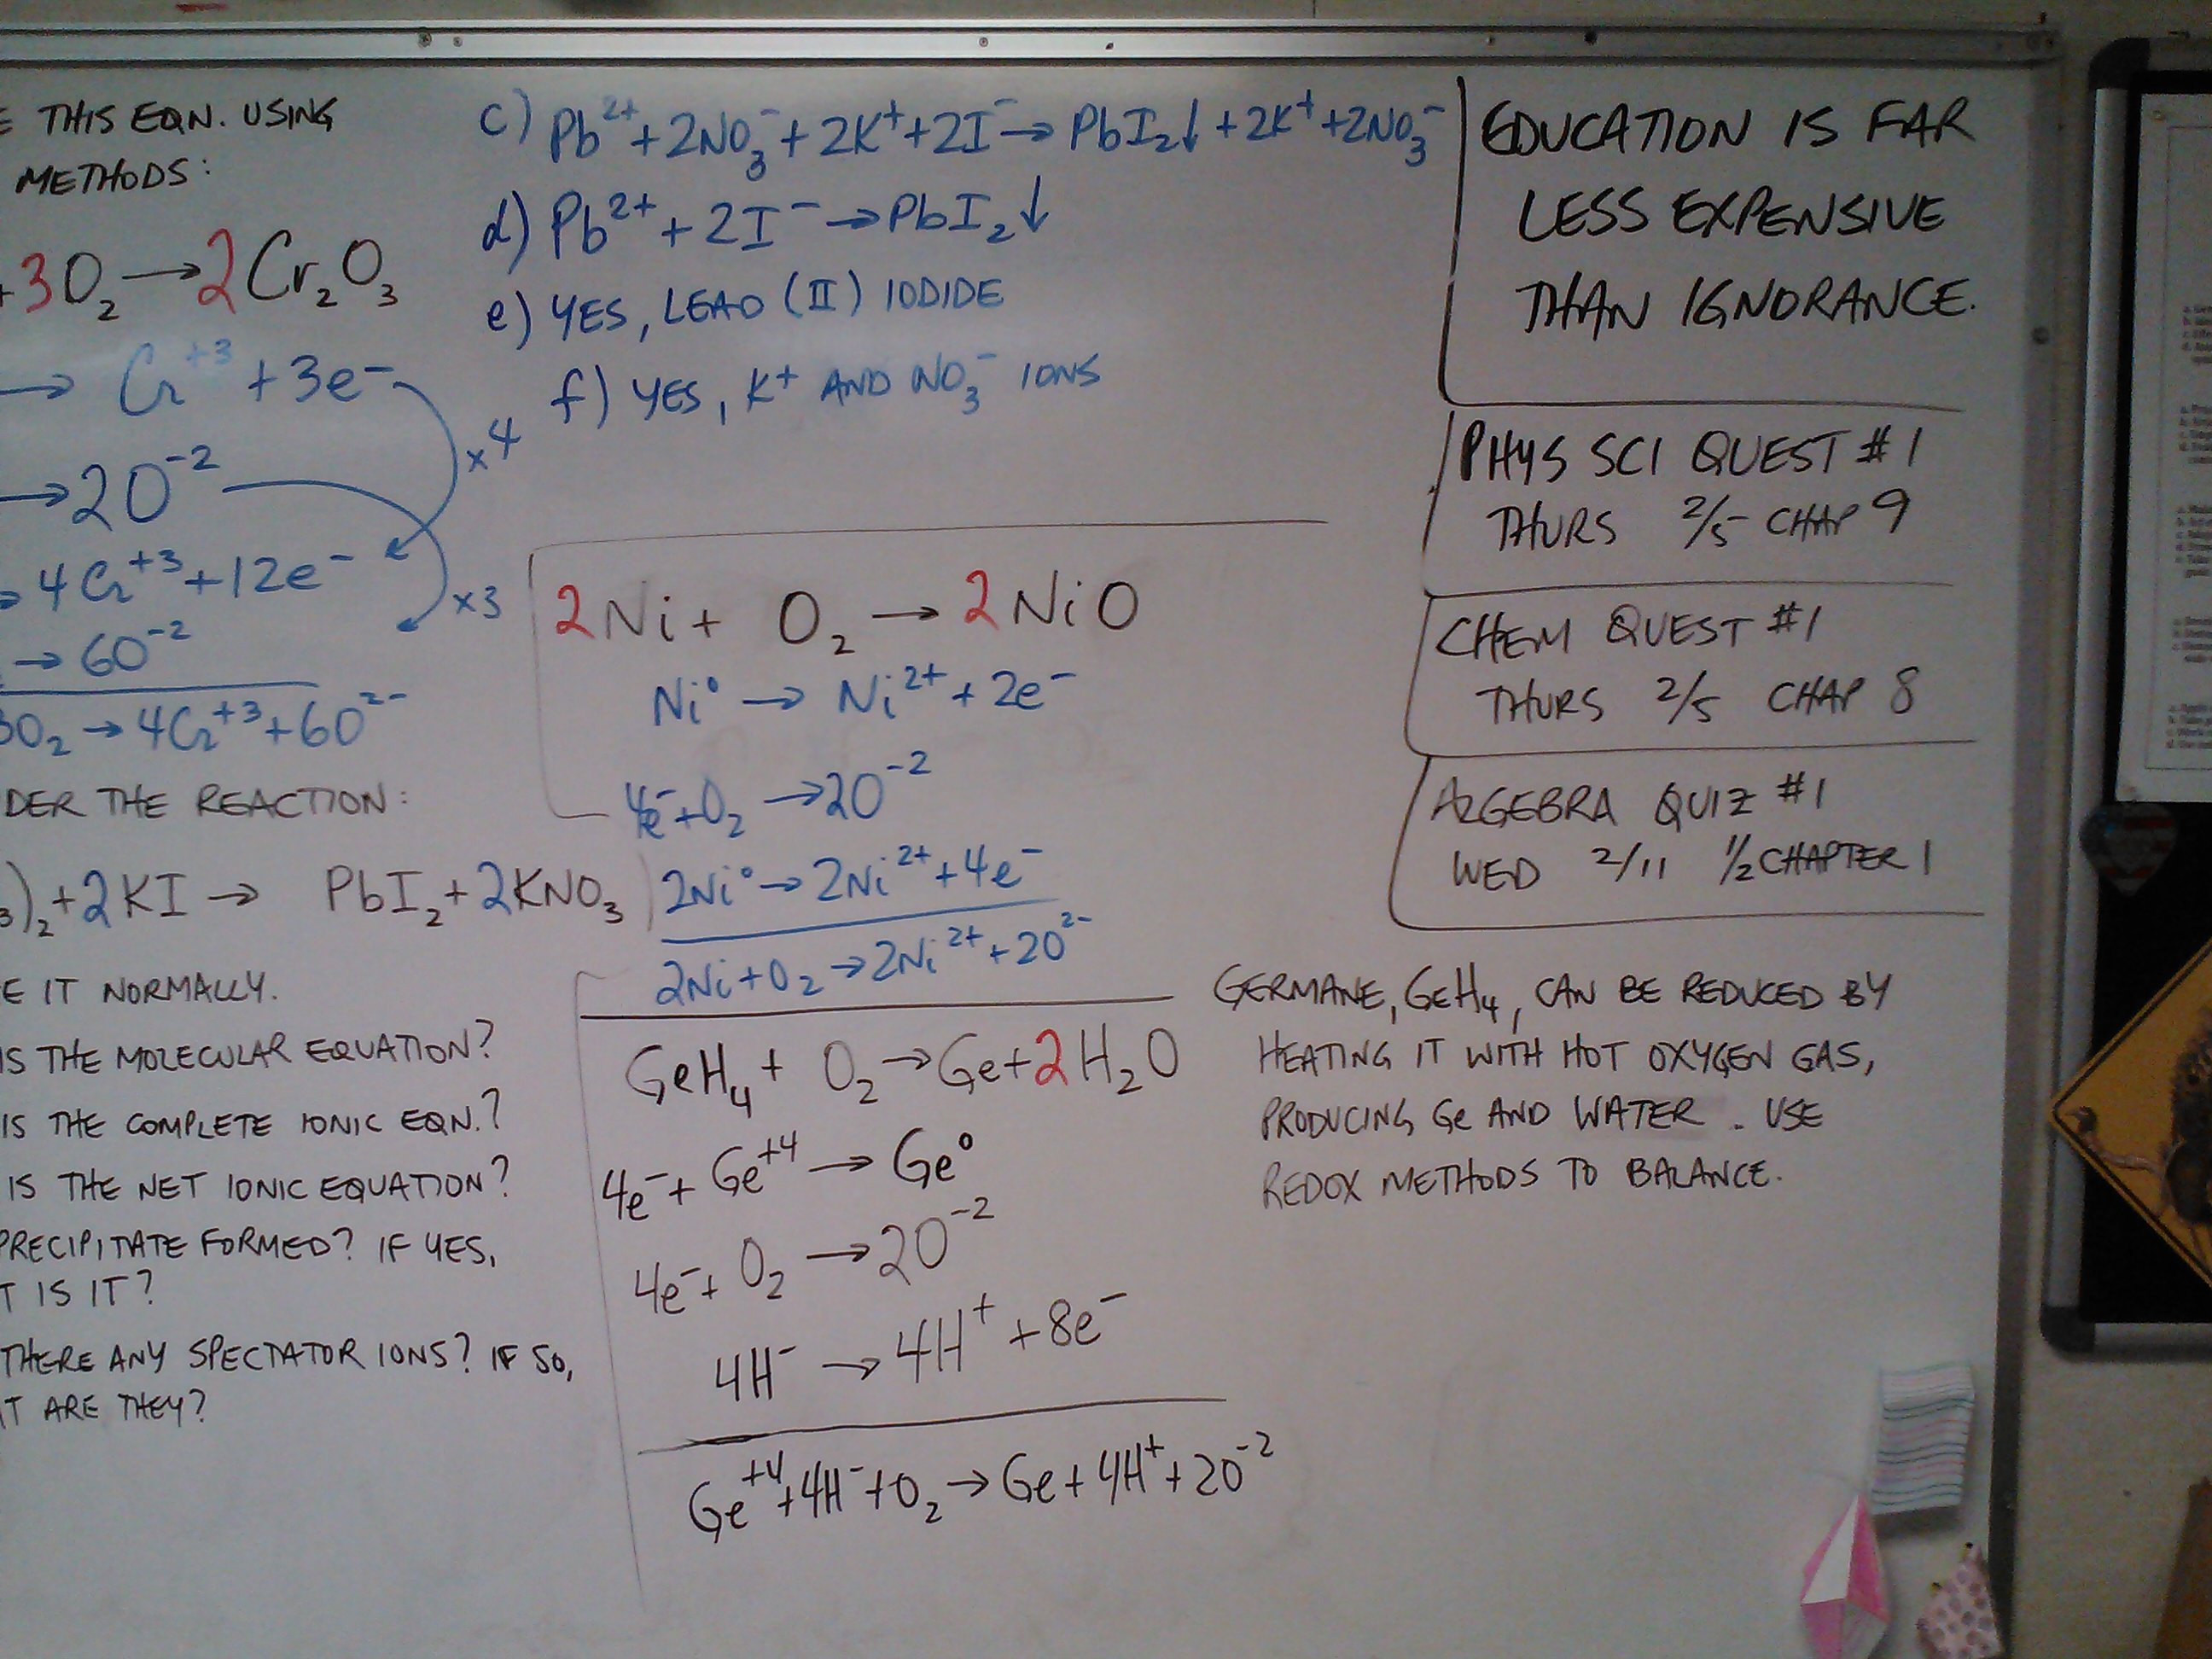 E THIS EQN. USING
METHODS:
+3O₂→2Cr₂O₃
→ Cr⁺³ +3e⁻
x4
→2O⁻²
→ 4Cr⁺³+12e⁻
x3
→ 6O⁻²
3O₂→4Cr⁺³+6O²⁻
DER THE REACTION:
₃)₂+2KI → PbI₂+2KNO₃
E IT NORMALLY.
IS THE MOLECULAR EQUATION?
IS THE COMPLETE IONIC EQN.?
IS THE NET IONIC EQUATION?
PRECIPITATE FORMED? IF YES,
T IS IT?
THERE ANY SPECTATOR IONS? IF SO,
T ARE THEY?
c) Pb²⁺+2NO₃⁻+2K⁺+2I⁻→PbI₂↓+2K⁺+2NO₃⁻
d) Pb²⁺+2I⁻→PbI₂↓
e) YES, LEAD (II) IODIDE
f) YES, K⁺ AND NO₃⁻ IONS
2Ni+ O₂→2NiO
Ni° → Ni²⁺+2e⁻
4e⁻+O₂→2O⁻²
2Ni°→2Ni²⁺+4e⁻
2Ni+O₂→2Ni²⁺+2O²⁻
GeH₄+ O₂→Ge+2H₂O
4e⁻+Ge⁺⁴→Ge°
4e⁻+O₂→2O⁻²
4H⁻→4H⁺+8e⁻
Ge⁺⁴+4H⁻+O₂→Ge+4H⁺+2O⁻²
EDUCATION IS FAR
LESS EXPENSIVE
THAN IGNORANCE.
PHYS SCI QUEST #1
THURS 2/5 CHAP 9
CHEM QUEST #1
THURS 2/5 CHAP 8
ALGEBRA QUIZ #1
WED 2/11 1/2 CHAPTER 1
GERMANE, GeH₄, CAN BE REDUCED BY
HEATING IT WITH HOT OXYGEN GAS,
PRODUCING Ge AND WATER. USE
REDOX METHODS TO BALANCE.